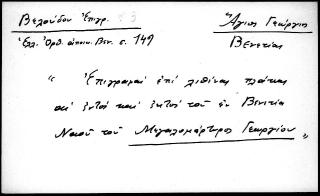 Βελούδου Ἐπιγρ.
Ἅγιος Γεώργιος
Ἑλλ. Ὀρθ. ἀποικ. Βεν. σ. 149
Βενετίας
" Ἐπιγραφαὶ ἐπὶ λιθίνας πλάκας
αἱ ἐντὸς καὶ ἐκτὸς τοῦ ἐν Βενετίᾳ
Ναοῦ τοῦ Μεγαλομάρτυρος Γεωργίου "